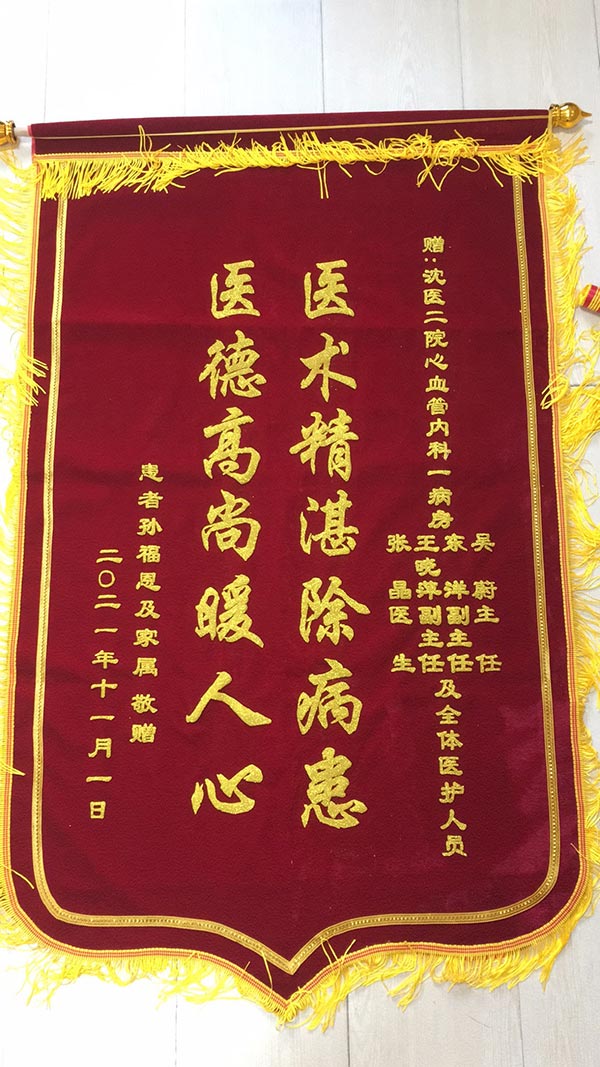 赠:沈医二院心血管内科一病房
吴蔚主任
东洋副主任
王晓萍副主任
张晶医生
及全体医护人员
医术精湛除病患
医德高尚暖人心
患者孙福恩及家属敬赠
二〇二一年十一月一日